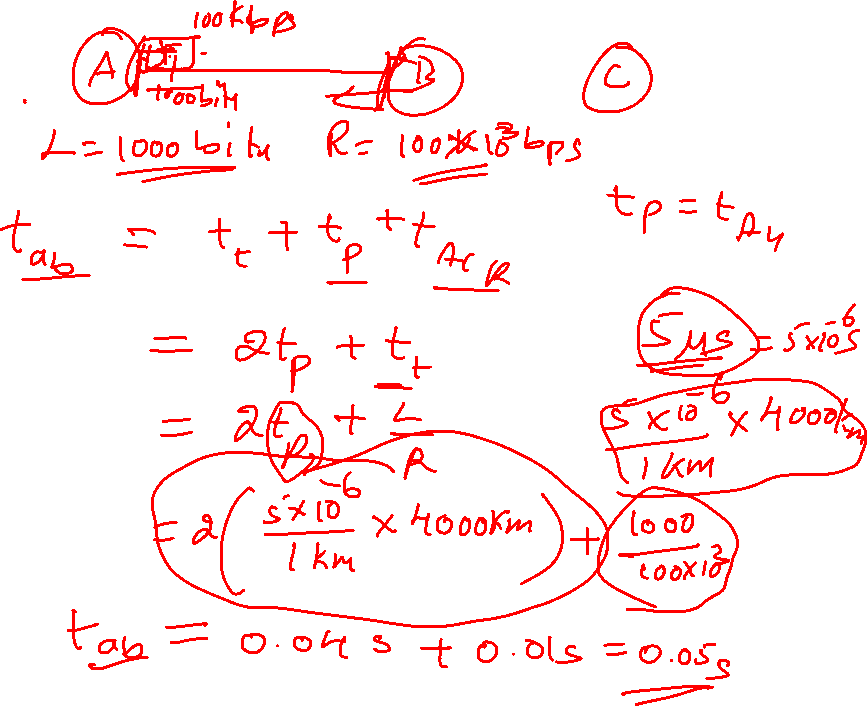 100Kbps
A B C
1000bits
L = 1000 bits R = 100×10³ bps
t_ab = t_t + t_p + t_ACK
t_p = t_Ack
= 2t_p + t_t
5 μs = 5×10⁻⁶s
= 2t_p + L/R
5×10⁻⁶/1 km × 4000km
= 2(5×10⁻⁶/1 km × 4000Km) + 1000/100×10³
t_ab = 0.04 s + 0.01s = 0.05s